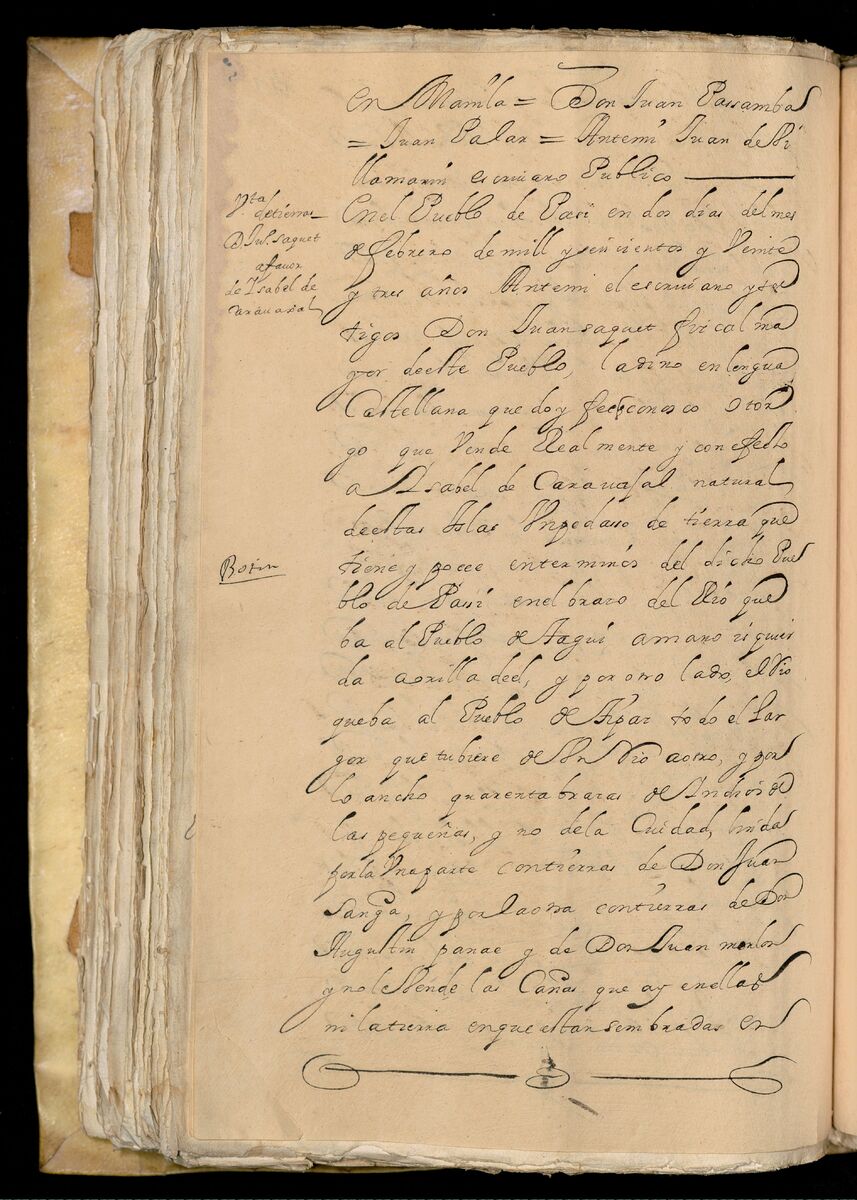 en Manila = Don Juan Passamba
= Juan Palar = Antemi Juan de Vi
llamarin escriuano Publico
Vta
de tierras
D. Juº. saquet
a fauor
de Ysabel de
Carauaxal
En el Pueblo de Pasi en dos dias del mes
de febrero de mill y seiscientos y Veinte
y tres años Antemi el escriuano y tes
tigos Don Juan saquet fiscal ma
yor de este Pueblo, ladino en lengua
Castellana que doy fee conosco otor
go que Vende Realmente y con efecto
a Isabel de Carauajal natural
de estas Islas Vn pedasso de tierra que
tiene y posee en terminos del dicho Pue
Botin
blo de Passi en el braso del Rio que
ba al Pueblo de Taguì a mano isquier
da a orilla del, y por otro lado, el Rio
que ba al Pueblo de Aipai todo el lar
gor que tubiere de Vn Rio a otro, y por
lo ancho quarenta brazas de Indios de
las pequeñas, y no de la Ciudad, linda
por la Vna parte con tierras de Don Juan
Sanga, y por la otra con tierras de Don
Augustin panae y de Don Juan
y no le Vende las Cañas que ay en ellas
ni la tierra en que estan sembradas en